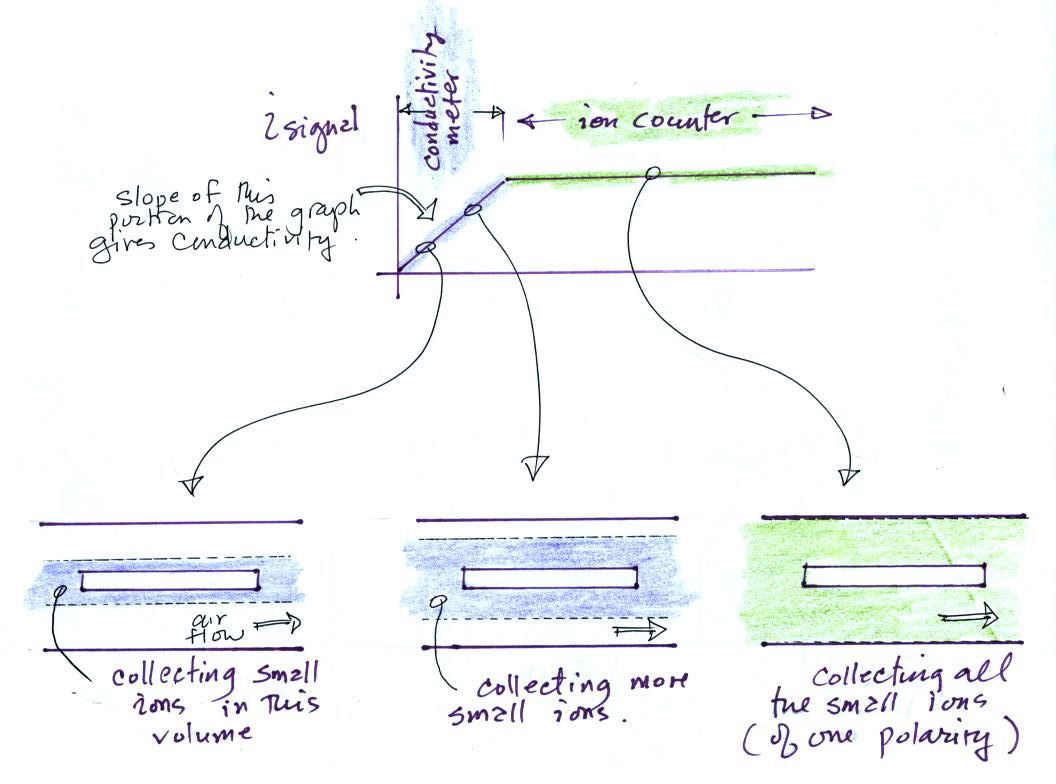 conductivity
meter
i signal
ion counter
slope of this
portion of the graph
gives conductivity.
air
flow
collecting small
ions in this
volume
collecting more
small ions.
collecting all
the small ions
(of one polarity)